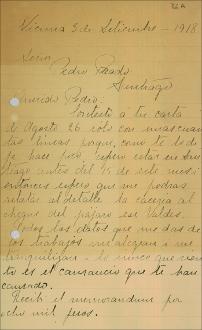 32 A
Vicuna 3 de Setiembre - 1918
Señor
Pedro Prado
Santiago
Querido Pedro,
Contesto á tu carta
de Agosto 26 sólo con unas cuan
tas líneas porque, como te lo di
je hace poco espero estar en San
tiago antes del 15 de este mes.
entonces espero que me podras
relatar al detalle la cacería al
cheque del pájaro en Valdes.
Todos los datos que me das de
los trabajos me alegran i me
tranquilizan. Lo único que sien
to es el cansancio que te han
causado.
Recibí el memorandum por
ocho mil pesos.